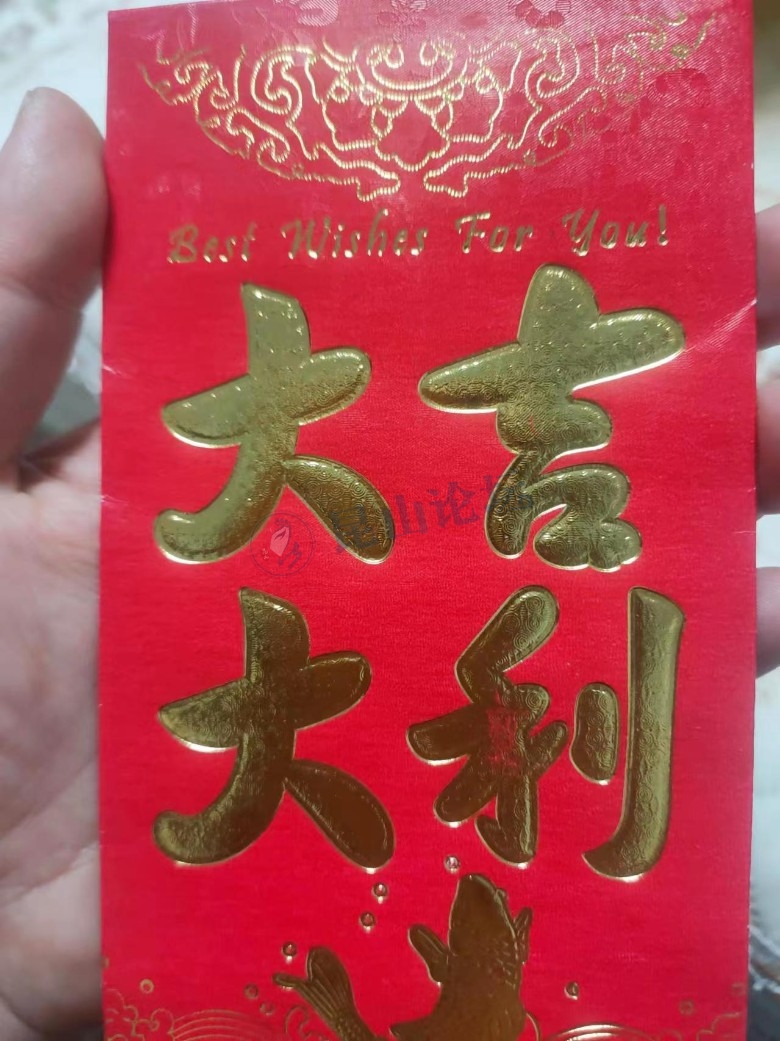 Best Wishes For You!
大吉
大利
昆山论坛